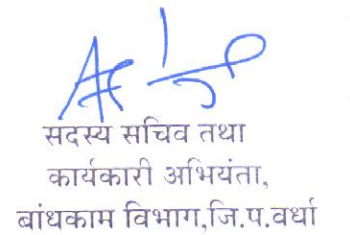 सदस्य सचिव तथा
कार्यकारी अभियंता,
बांधकाम विभाग,जि.प.वर्धा